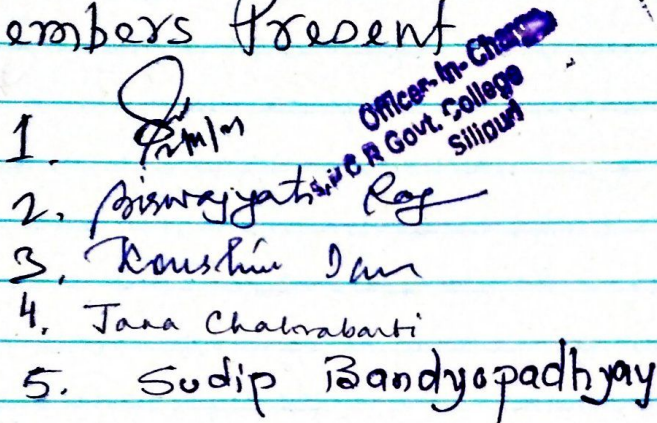 embers Present
Officer-In-Charge
C R Govt. College
Siliguri
1.
2. Biswajyati Roy
3. Koushik Dam
4. Jana Chakrabarti
5. Sudip Bandyopadhyay